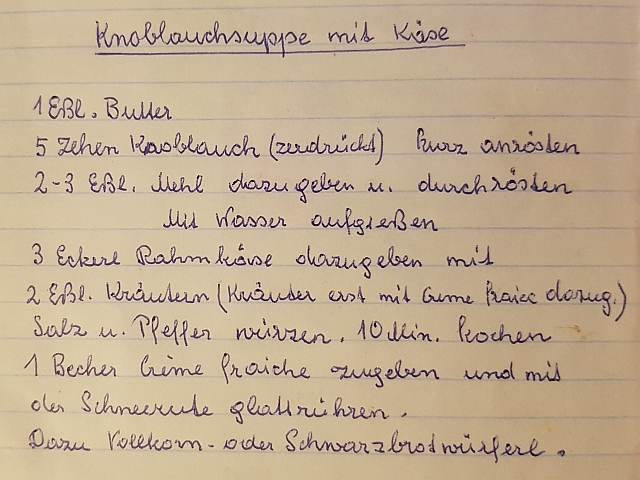 Knoblauchsuppe mit Käse
1 Eßl. Butter
5 Zehen Knoblauch (zerdrückt) kurz anrösten
2-3 Eßl. Mehl dazugeben u. durchrösten
Mit Wasser aufgießen
3 Eckerl Rahmkäse dazugeben mit
2 Eßl. Kräutern (Kräuter erst mit Creme Fraice dazug.)
Salz u. Pfeffer würzen. 10 Min. kochen
1 Becher Crème fraiche zugeben und mit
der Schneerute glattrühren.
Dazu Vollkorn- oder Schwarzbrotwürferl.